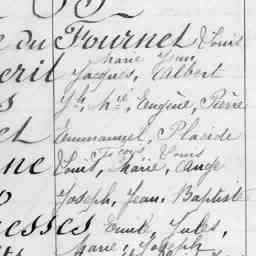 e du Fournet Louis
Marie Jean
erit Jacques, Albert
s Jh, Mie, Eugène, Pierre
et Emmanuel, Placide
ne Louis, Marie, Ange
Joseph, Jean, Baptiste
esses Emile, Jules,
Marie, Joseph